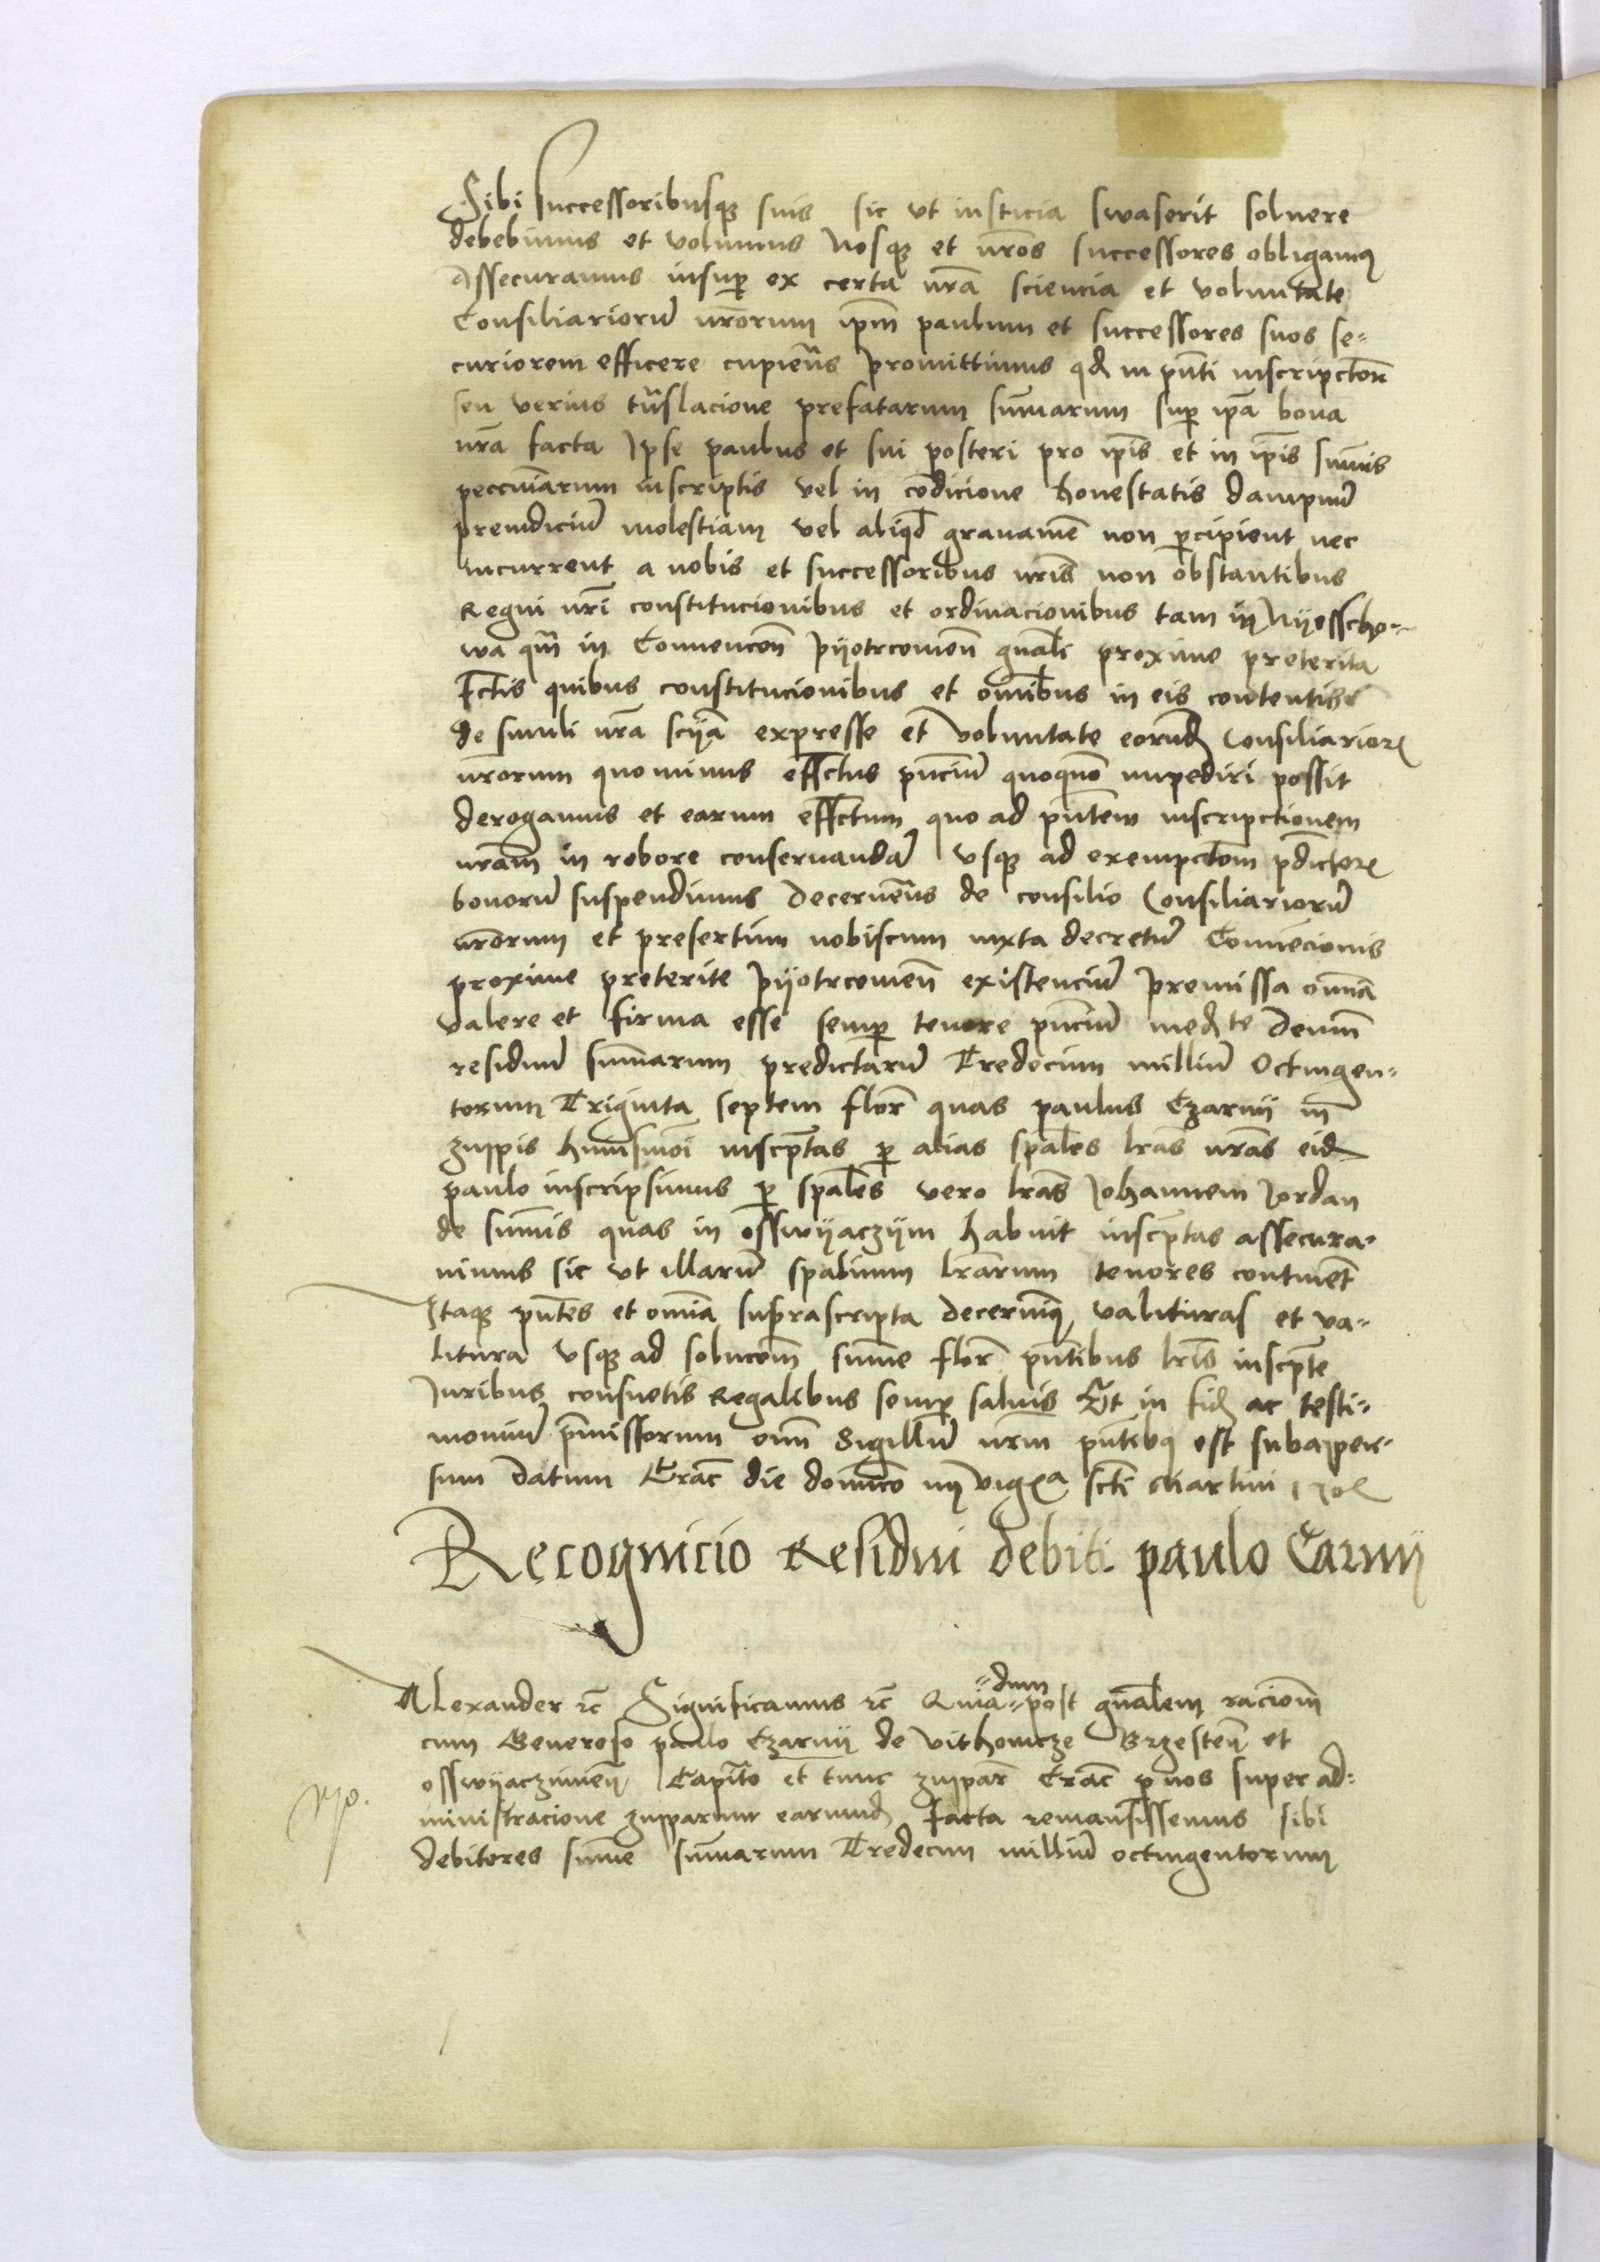 Sibi successoribusq suis sic ut iusticia swaserit solvere
debebimus et volumus Nosq et nr̄os successores obligamus
Assecuramus insup ex certa nr̄a sciencia et voluntate
Consiliariorū nr̄orum ipm̄ paulum et successores suos se-
curiorem efficere cupien̄s promittimus qd in pn̄ti inscripctōn
seu verius trāslacione prefatarum sūmarum sup ip̄a bona
nr̄a facta Ipse paulus et sui posteri pro ip̄is et in ip̄is sūmis
peccuniarum inscriptis vel in cōdicione honestatis dampnū
preiudiciū molestiam vel aliqd gravamē non p̄cipient nec
incurrent a nobis et successoribus nr̄is non obstantibus
Regni nr̄i constitucionibus et ordinacionibus tam in Nyesscho-
wa qm̄ in Convencōn pyotrcovien̄ gn̄ali proxime preterita
fctis quibus constitucionibus et om̄ibus in eis contentis
de simili nr̄a sc̄ia expresse et voluntate eorūd Consiliarior
nr̄orum quominus effctus pn̄ciū quoqūo impediri possit
derogamus et earum effctum quo ad pn̄tem inscripctionem
nr̄am in robore conservandā usq ad exempctōm pdictor
bonorū suspendimus decernen̄s de consilio Consiliariorū
nr̄orum et presertim nobiscum iuxta decretū Convēcionis
proxime preterite pyotrcovien̄ existenciū premissa om̄ia
valere et firma esse semp tenore pn̄ciū medte Demū
residuū sūmarum predictarū Tredecim milliū Octingen-
torum Triginta septem flor̄ quas paulus Czarny in
zuppis huiusmōi inscp̄tas p alias sp̄ales lr̄as nr̄as eid
paulo inscripsimus p sp̄ales vero lr̄as Johannem Jordan
de sūmis quas in osswyaczym habuit inscp̄tas assecura-
vimus sic ut illarū sp̄alium lr̄arum tenores continēt
Itaq pn̄tes et om̄ia suprascripta decernimus valituras et va-
litura usq ad solucōm sūme flor̄ pn̄tibus lr̄is inscp̄te
Juribus consuetis Regalibus semp salvis Et in fid ac testi-
moniū p̄missorum om̄ Sigillū nr̄m pn̄tibus est subappen-
sum Datum Crac̄ die domīco in vigia sc̄ti Martini
Recognicio Residui debiti paulo Carny
-dum
Alexander rc̄ Significamus rc̄ Quia-post gn̄alem raciōm
cum Generoso paulo Czarny de vithowicze Brzesten̄ et
osswyaczimien̄ Capit̄o et tunc zuppar̄ Crac̄ p nos super ad-
ministracione zupparum earumd facta remansissemus sibi
debitores sūme sūmarum Tredecim milliū octingentorum